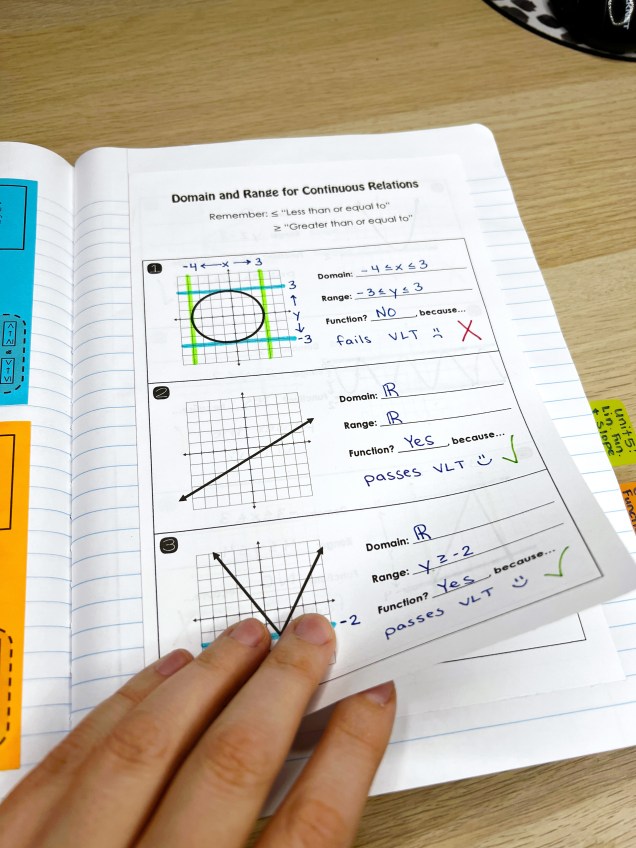 Domain and Range for Continuous Relations
Remember: ≤ "Less than or equal to"
≥ "Greater than or equal to"
1
-4 ← x → 3
3
↑
y
↓
-3
Domain: -4 ≤ x ≤ 3
Range: -3 ≤ y ≤ 3
Function? No, because...
fails VLT :( X
2
Domain: ℝ
Range: ℝ
Function? Yes, because...
passes VLT :) ✓
3
-2
Domain: ℝ
Range: y ≥ -2
Function? Yes, because...
passes VLT :) ✓
Unit 5:
Lin. Fun.
+ Slope